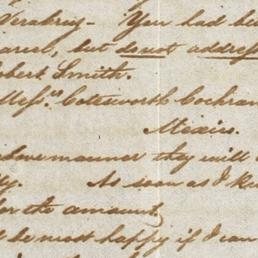 Verakruz - You had be
arcel, but do not address
obert Smith.
Mess.rs Cotesworth Cochran
Mexico.
above manner they will
As soon as I
for the amount,
be most happy if I can